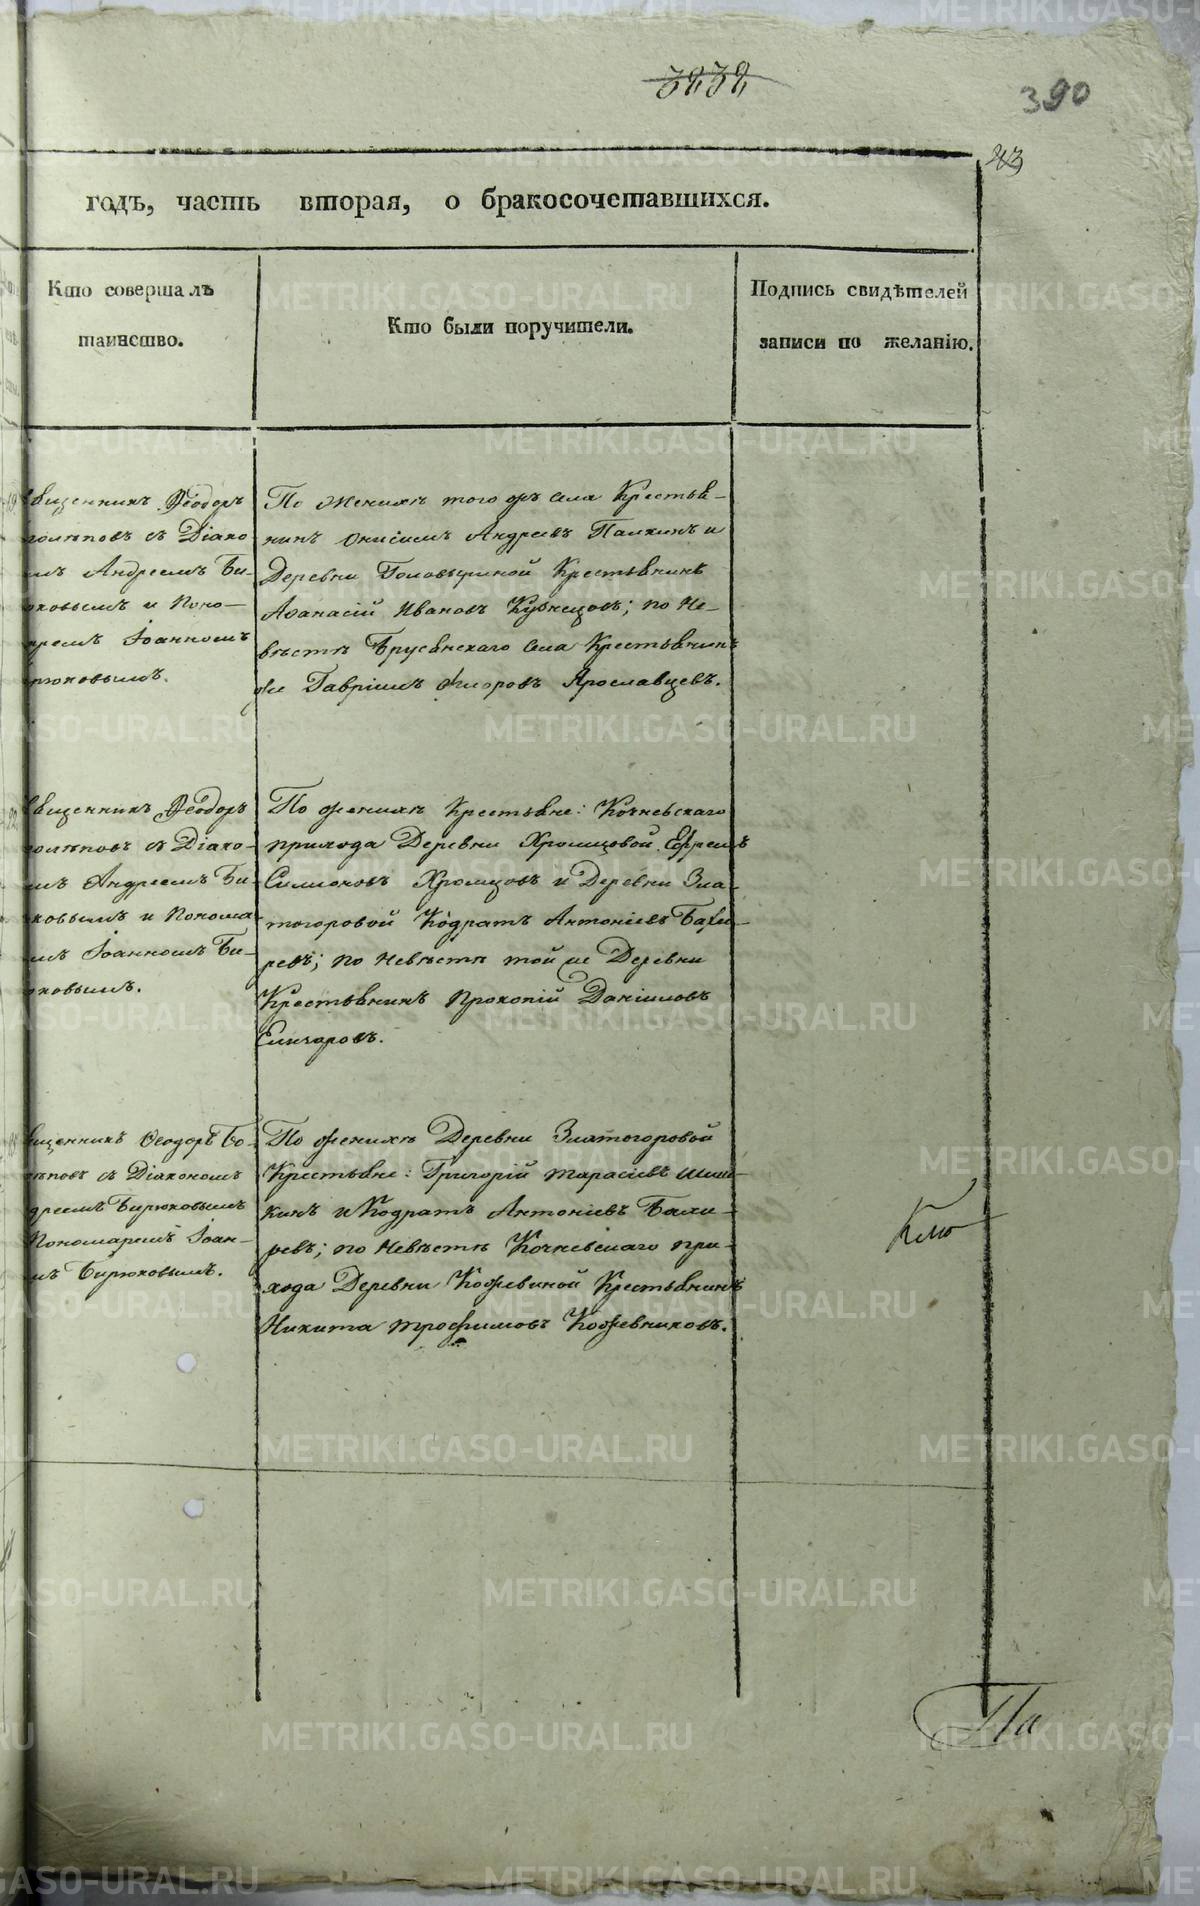 3232
390
23
годъ, часть вторая, о бракосочетавшихся.
Кто совершалъ
таинство.
Кто были поручители.
Подпись свидѣтелей
записи по желанію.
вященникъ Ѳеодоръ
голѣповъ съ Діако-
мъ Андреемъ Би-
юковымъ и Поно-
аремъ Іоанномъ
ирюковымъ.
По Женихѣ того жъ села Крестья-
нинъ Онисимъ Андреевъ Палкинъ и
Деревни Головыриной Крестьянинъ
Аѳанасій Ивановъ Кузнецовъ; по Не-
вѣстѣ Брусянскаго села Крестьянинъ
же Гавріилъ Ѳедоровъ Ярославцевъ.
вященникъ Ѳеодоръ
голѣповъ съ Діако-
мъ Андреемъ Би-
юковымъ и Понома-
мъ Іоанномъ Би-
юковымъ.
По женихѣ Крестьяне: Кочневскаго
прихода Деревни Хромцовой Ефремъ
Симоновъ Хромцовъ и Деревни Зла-
тогоровой Кодратъ Антоніевъ Бахи-
ревъ; по Невѣстѣ той же Деревни
Крестьянинъ Прокопій Даніиловъ
вященникъ Ѳеодоръ Бо-
лѣповъ съ Діакономъ
дреемъ Бирюковымъ
Пономаремъ Іоан-
мъ Бирюковымъ.
По женихѣ Деревни Златогоровой
Крестьяне: Григорій Тарасіевъ Шиш-
кинъ и Кодратъ Антоніевъ Бахи-
ревъ; по Невѣстѣ Кочневскаго при-
хода Деревни Кожевиной Крестьянинъ
Никита Трофимовъ Кожевниковъ.
Па
METRIKI.GASO-URAL.RU